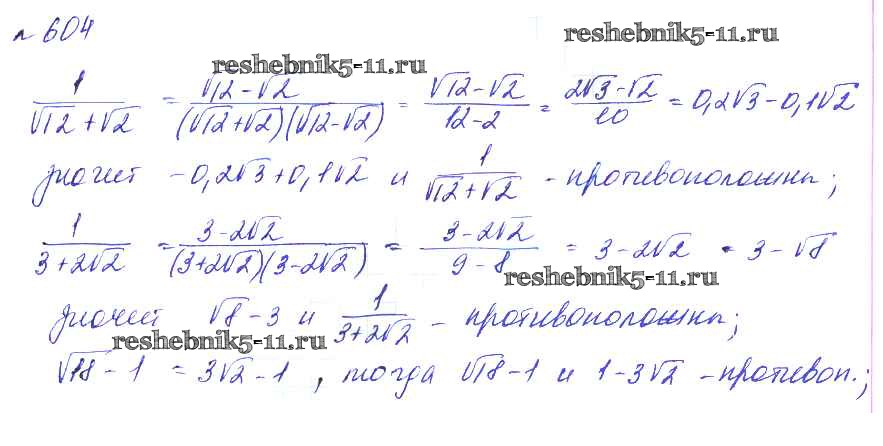 № 604
reshebnik5-11.ru
reshebnik5-11.ru
1/(√12+√2) = (√12-√2)/((√12+√2)(√12-√2)) = (√12-√2)/(12-2) = (2√3-√2)/10 = 0,2√3-0,1√2
значит -0,2√3+0,1√2 и 1/(√12+√2) - противоположны;
1/(3+2√2) = (3-2√2)/((3+2√2)(3-2√2)) = (3-2√2)/(9-8) = 3-2√2 = 3-√8
reshebnik5-11.ru
значит √8-3 и 1/(3+2√2) - противоположны;
reshebnik5-11.ru
√18-1 = 3√2-1, тогда √18-1 и 1-3√2 - противоп.;